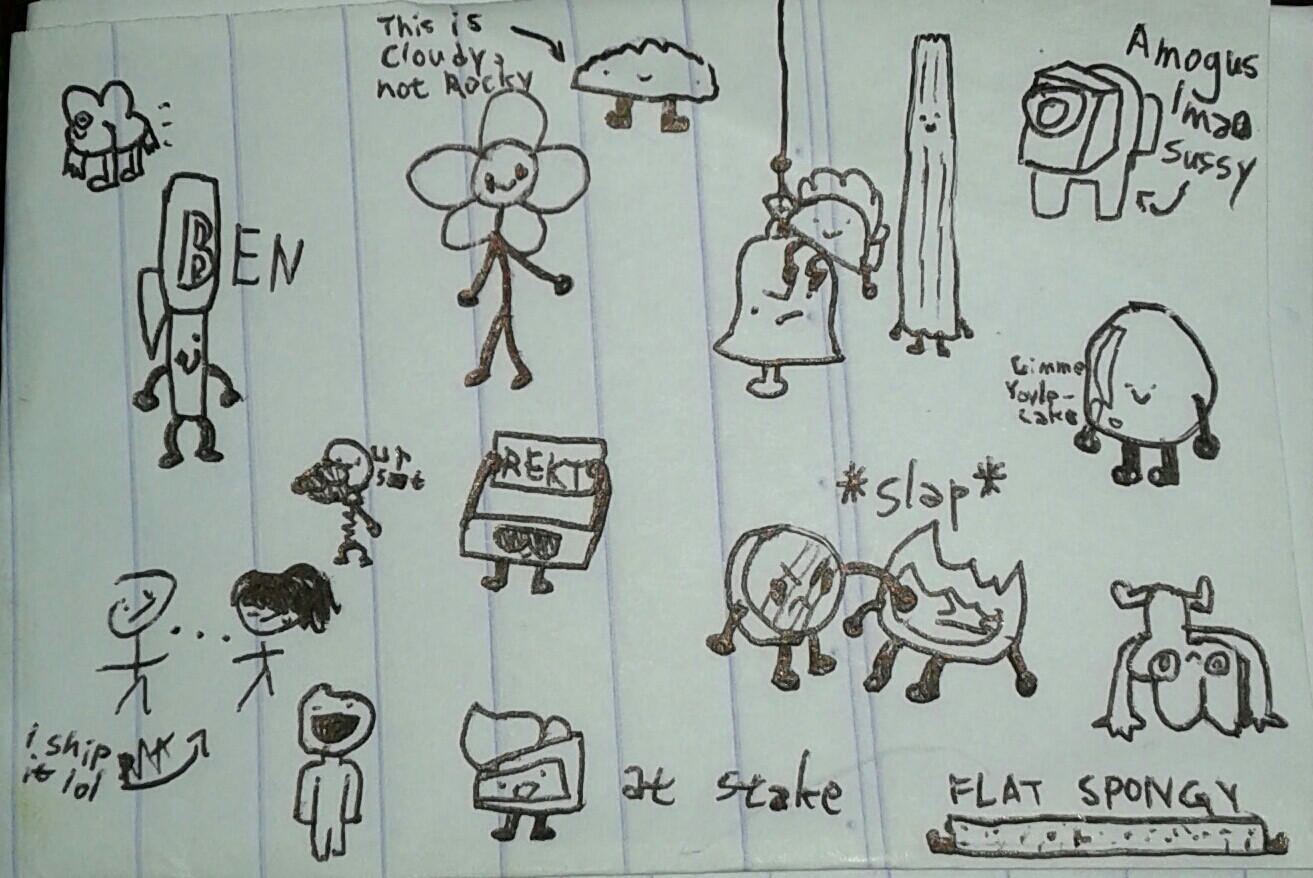 This is
Cloudy,
not Rocky
Amogus
lmao
sussy
BEN
Gimme
Yoyle-
cake
REKT
*slap*
i ship
it lol
at stake
FLAT SPONGY